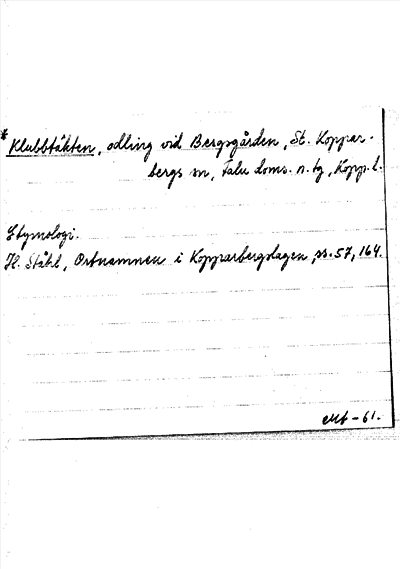 * Klubbtäkten, odling vid Bergsgården, St. Koppar-
bergs sn, Falu doms. n. tg, Kopp. l.
Etymologi.
H. Ståhl, Ortnamnen i Kopparbergslagen, ss. 57, 164.
-61.